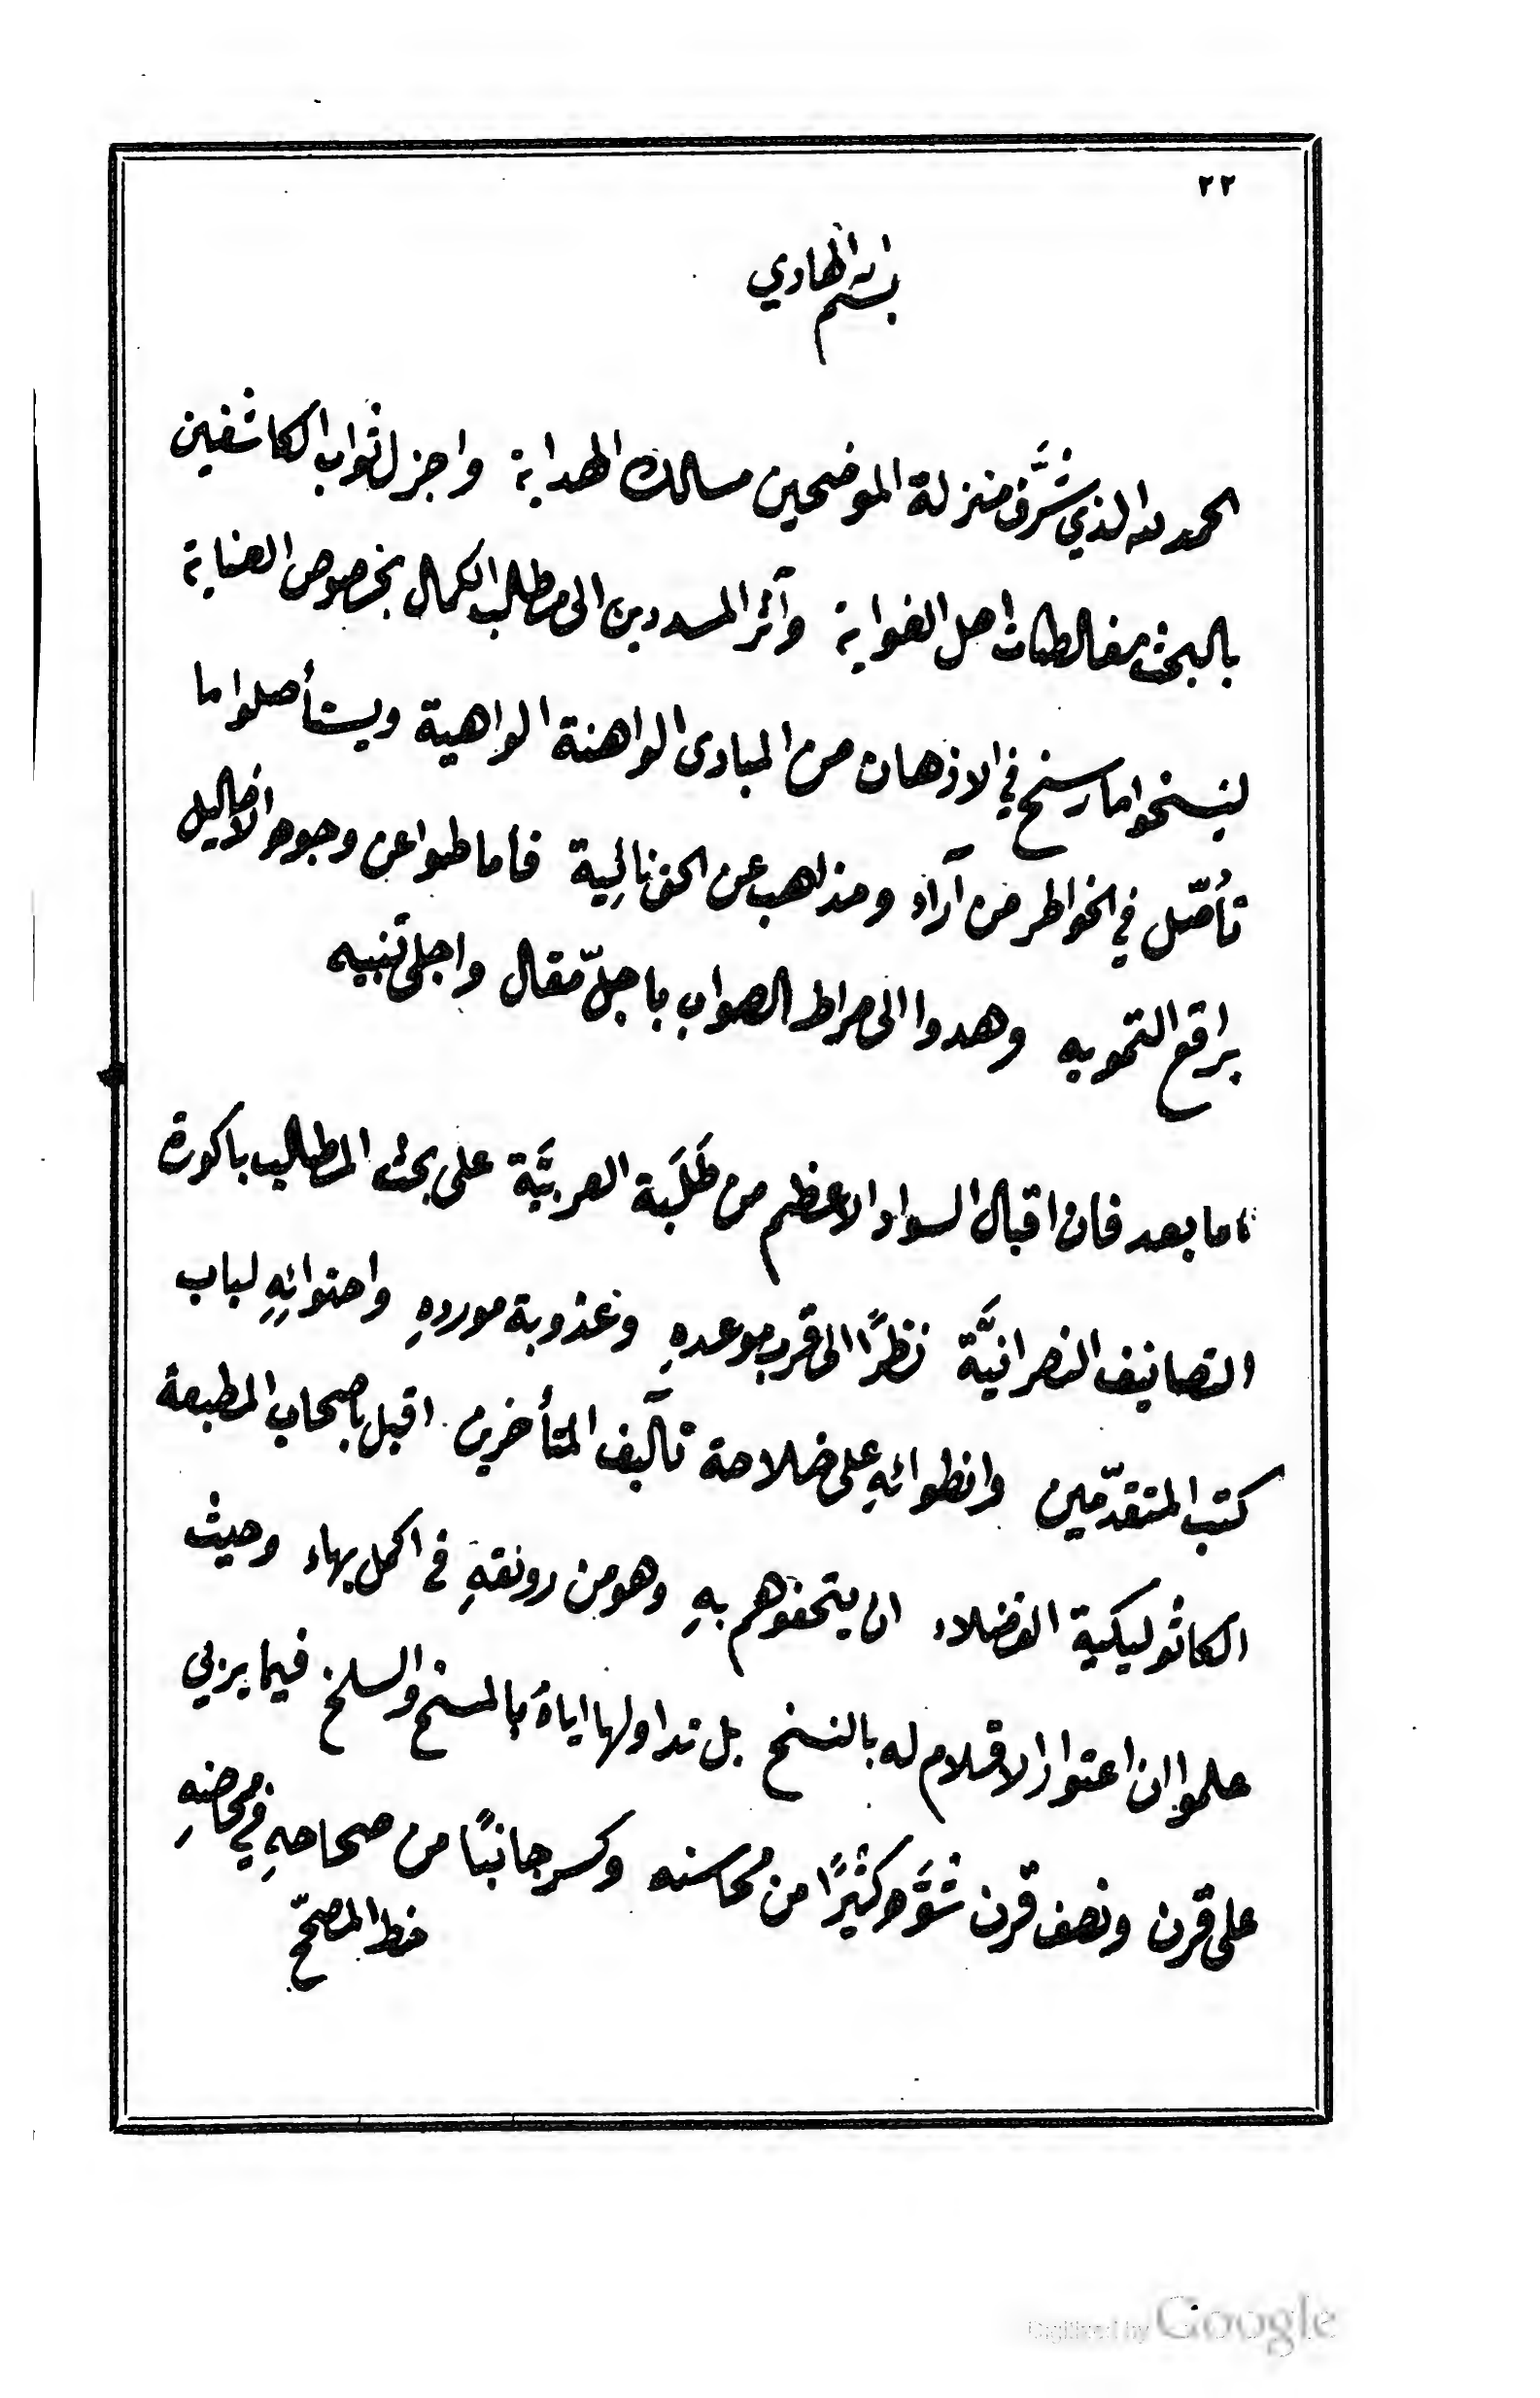 ٢٢
بسم الله الهادي
الحمد لله الذي شرَّف منزلة الموضحين مسالك الهداية واجزل ثواب الكاشفين
بالبحث مغالطات اهل الغواية وآثر المسددين الى مطلب الكمال بخصوص العناية
لينسخوا ما رسخ في الاذهان من المبادئ الواهنة الواهية ويستأصلوا ما
تأصّل في الخواطر من آراء ومذاهب عن الحق نائية فاماطوا عن وجوه الاضاليل
براقع التمويه وهدوا الى صراط الصواب باجلّ مقال واجلى تنبيه
اما بعد فان اقبال السواد الاعظم من طَلَبة العربيَّة على بحث المطالب باكورة
التصانيف النصرانيَّة نظرًا الى قرب موعدهِ وعذوبة موردهِ واحتوائِهِ لباب
كتب المتقدّمين وانطوائهِ على خلاصة تآليف المتأخرين اقبل باصحاب المطبعة
الكاثوليكية الفضلاء ان يتحفوهم بهِ وهو من رونقهِ في اكمل بهاء وحيث
علموا ان اعتوار الاقلام له بالنسخ بل تداولها اياهُ بالمسخ والسلخ فيما يربي
على قرن ونصف قرن شوَّه كثيرًا من محاسنه وكسر جانبًا من صحاحهِ في محاضنهِ
خط المصحّح
Digitized by Google